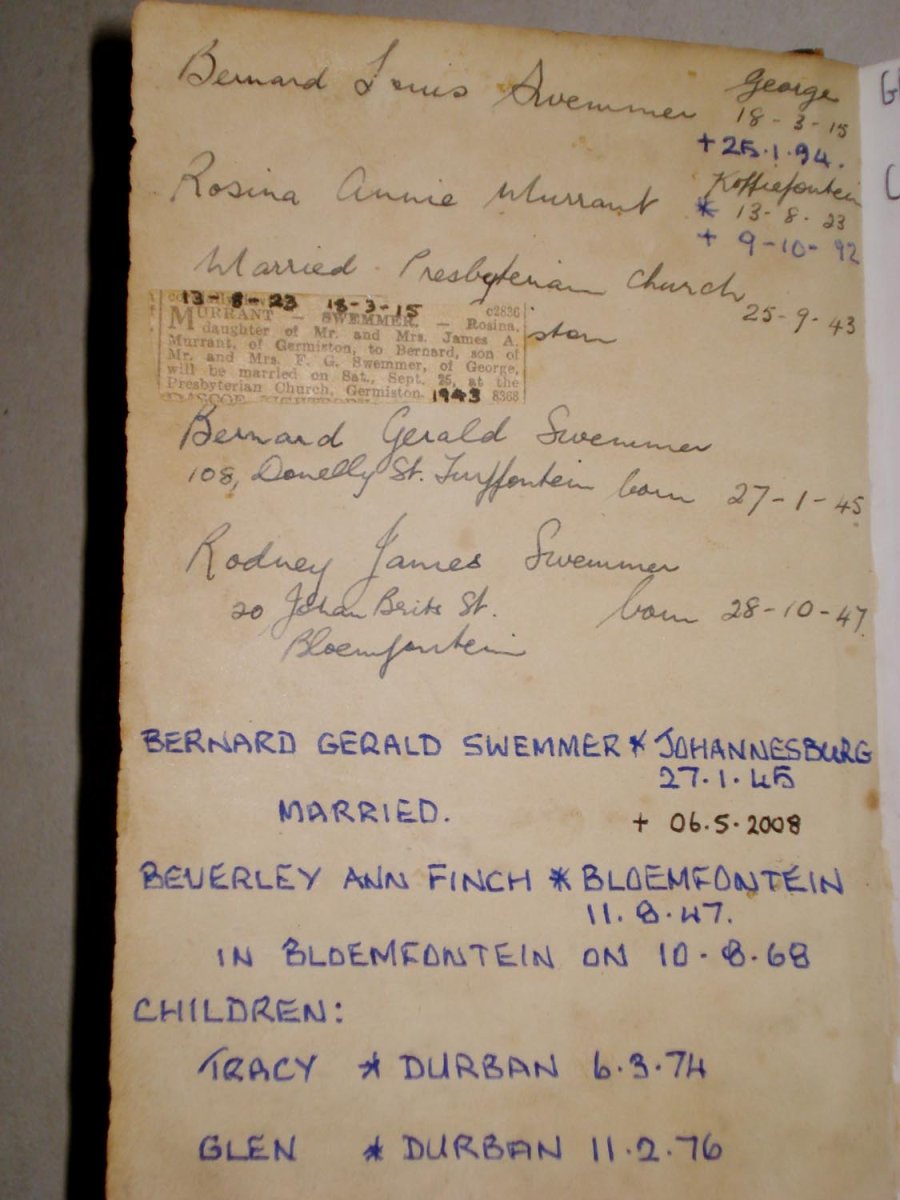 Bernard Louis Swemmer George
18-3-15
+25.1.94.
Rosina Annie Murrant Koffiefontein
* 13-8-23
+ 9-10-92
Married Presbyterian Church
25-9-43
ston
13-8-23 18-3-15 c2836
MURRANT — SWEMMER. — Rosina,
daughter of Mr. and Mrs. James A.
Murrant, of Germiston, to Bernard, son of
Mr. and Mrs. F. G. Swemmer, of George,
will be married on Sat., Sept. 25, at the
Presbyterian Church, Germiston. 1943 8368
Bernard Gerald Swemmer
108, Donelly St. Turffontein born 27-1-45
Rodney James Swemmer
20 Johan Brits St. born 28-10-47.
Bloemfontein
BERNARD GERALD SWEMMER * JOHANNESBURG
27.1.45
MARRIED.
+ 06.5.2008
BEVERLEY ANN FINCH * BLOEMFONTEIN
11.8.47.
IN BLOEMFONTEIN ON 10.8.68
CHILDREN:
TRACY * DURBAN 6.3.74
GLEN * DURBAN 11.2.76